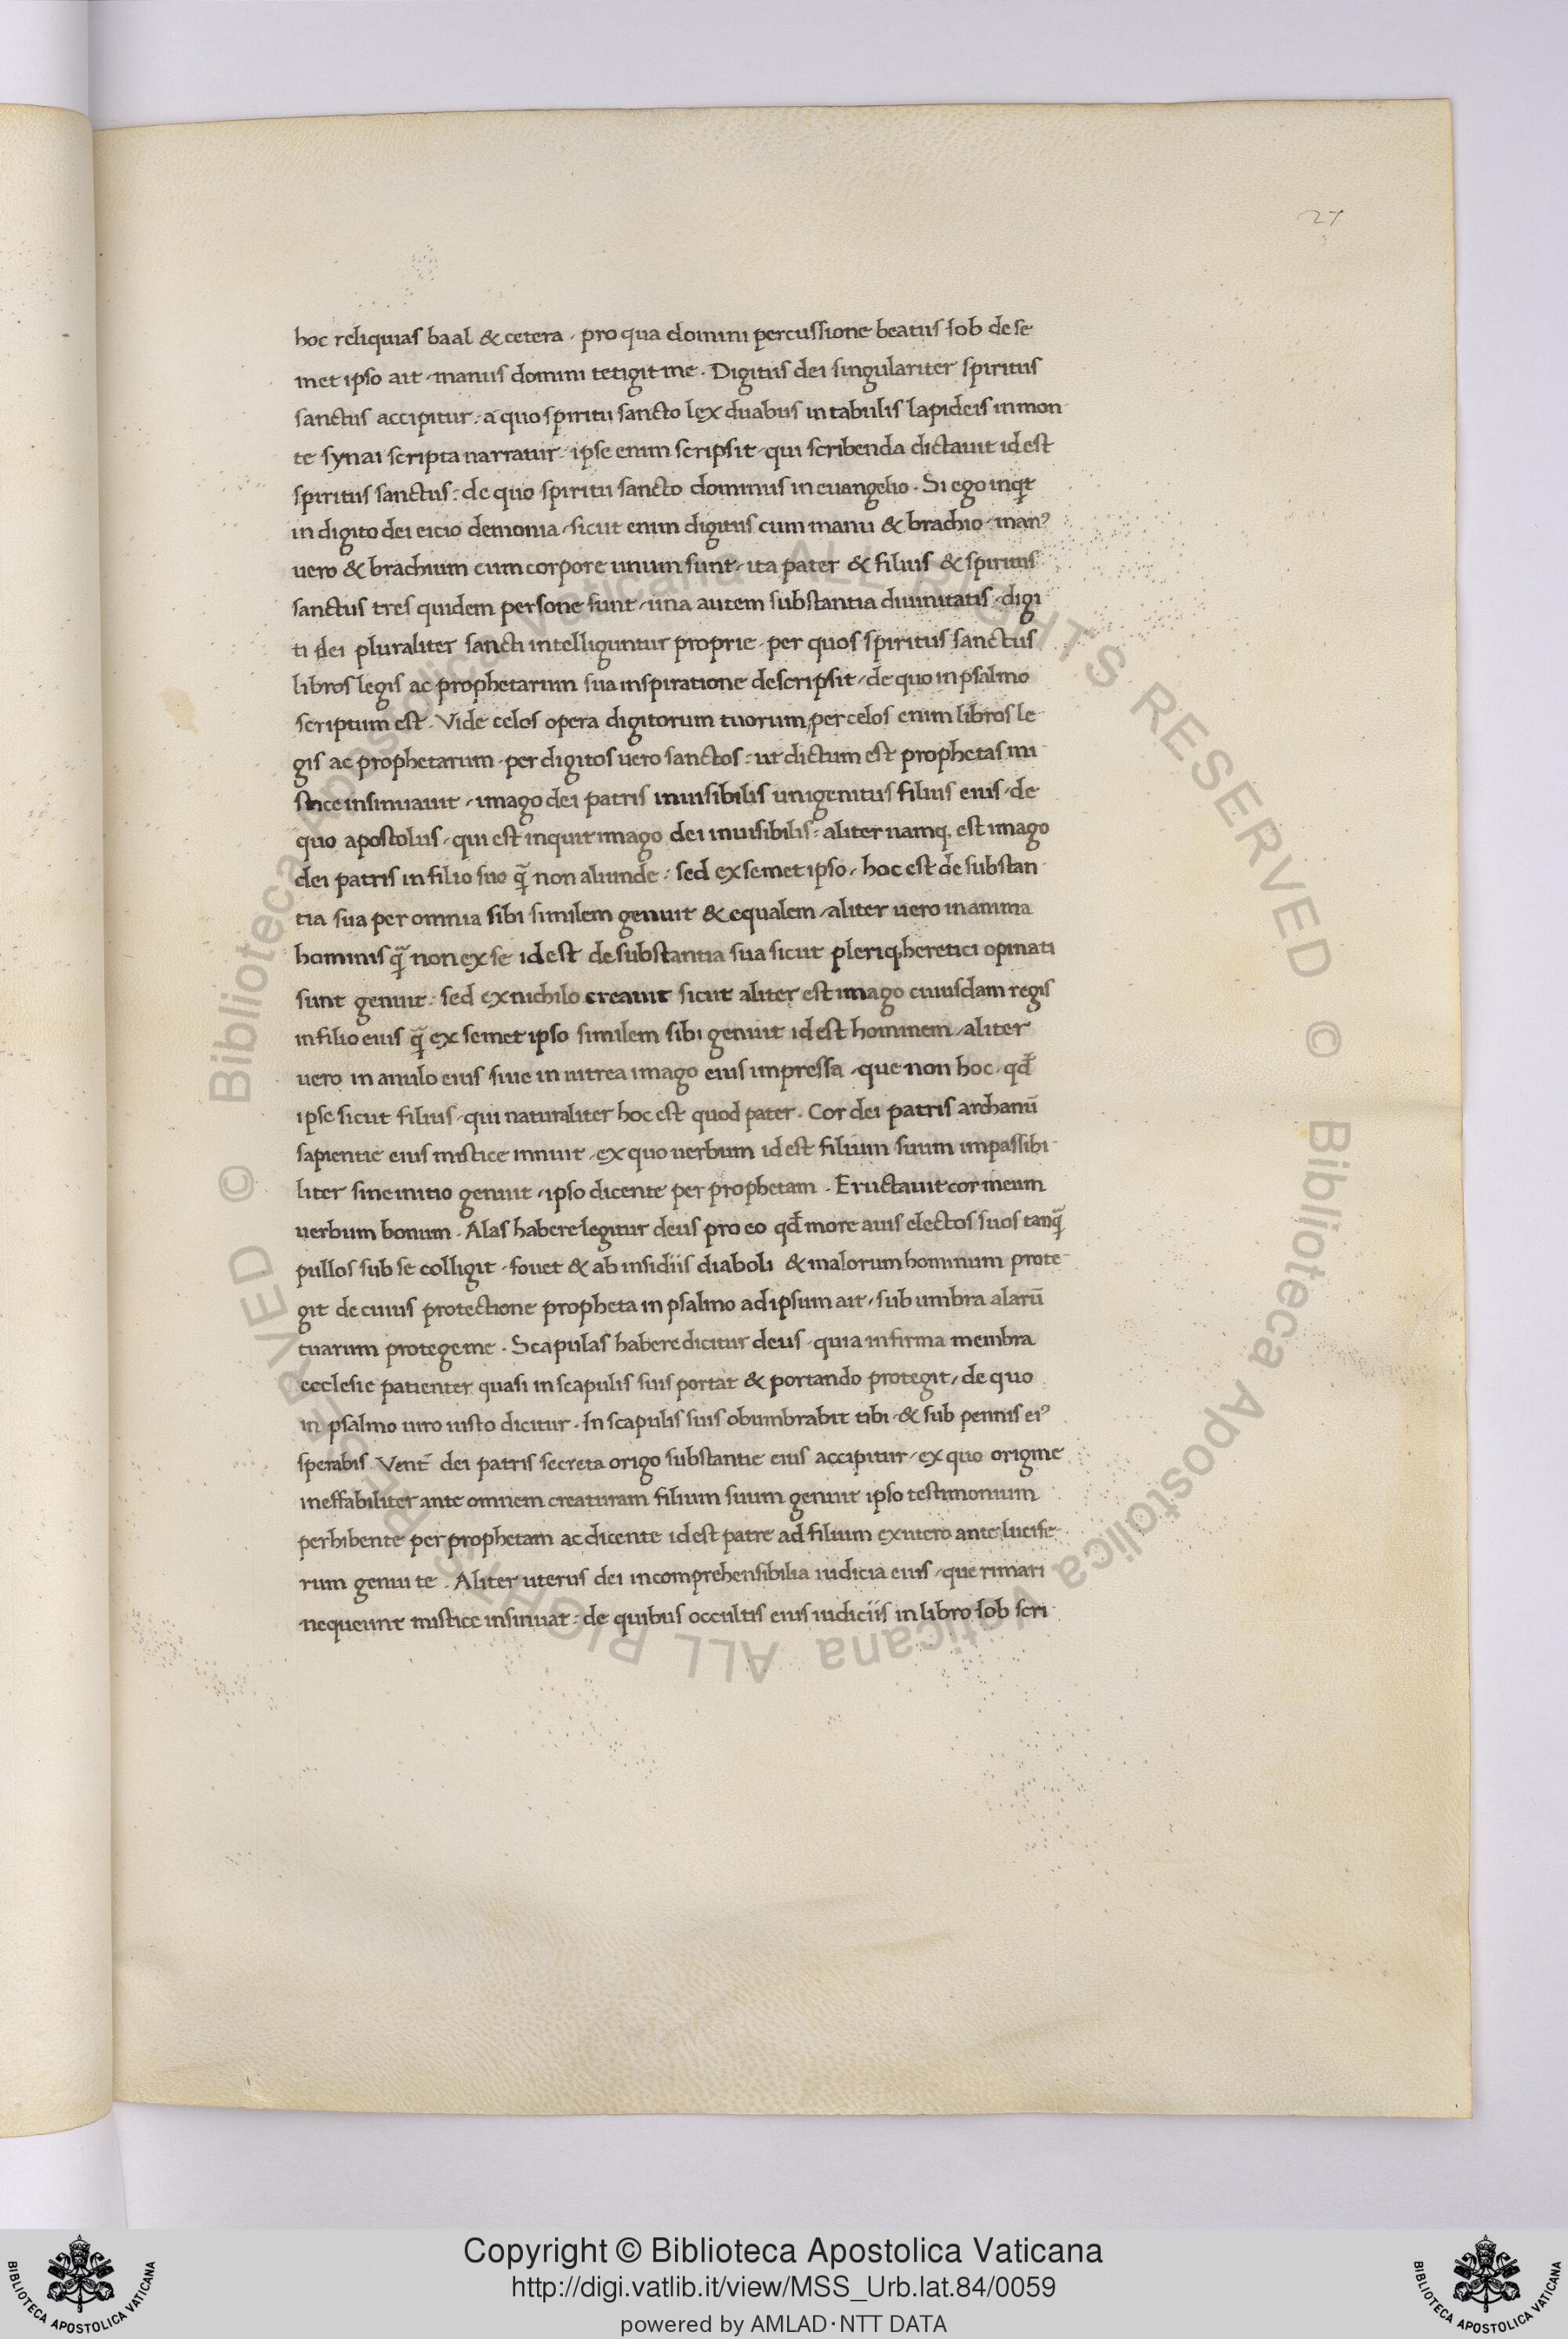 27
hoc reliquias baal & cetera · pro qua domini percussione beatus Iob de se
met ipso ait · manus domini tetigit me · Digitus dei singulariter spiritus
sanctus accipitur : a quo spiritu sancto lex duabus in tabulis lapideis in mon
te synai scripta narratur : ipse enim scripsit · qui scribenda dictauit id est
spiritus sanctus : de quo spiritu sancto dominus in euangelio · Si ego inqt
in digito dei eicio demonia · sicut enim digitus cum manu & brachio · man9
uero & brachium cum corpore unum sunt · ita pater & filius & spiritus
sanctus tres quidem persone sunt · una autem substantia diuinitatis · digi
ti dei pluraliter sancti intelliguntur proprie · per quos spiritus sanctus
libros legis ac prophetarum sua inspiratione descripsit · de quo in psalmo
scriptum est · Vide celos opera digitorum tuorum, per celos enim libros le
gis ac prophetarum · per digitos uero sanctos : ut dictum est prophetas mi
stice insinuauit · imago dei patris inuisibilis unigenitus filius eius · de
quo apostolus · qui est inquit imago dei inuisibilis : aliter namq, est imago
dei patris in filio suo q̃ non aliunde : sed ex semet ipso · hoc est de substan
tia sua per omnia sibi similem genuit & equalem · aliter uero in anima
hominis q̃ non ex se id est de substantia sua sicut pleriq, heretici opinati
sunt genuit : sed ex nichilo creauit sicut aliter est imago cuiusdam regis
in filio eius q̃ ex semet ipso similem sibi genuit id est hominem · aliter
uero in anulo eius siue in uitrea imago eius impressa · que non hoc · qd̃
ipse sicut filius · qui naturaliter hoc est quod pater · Cor dei patris archanū
sapientie eius mistice innuit · ex quo uerbum id est filium suum impassibi
liter sine initio genuit · ipso dicente per prophetam · Eructauit cor meum
uerbum bonum · Alas habere legitur deus pro eo qd̃ more auis electos suos tanq̃
pullos sub se colligit · fouet & ab insidiis diaboli & malorum hominum prote
git de cuius protectione propheta in psalmo ad ipsum ait · sub umbra alarū
tuarum protege me · Scapulas habere dicitur deus · quia infirma membra
ecclesie patienter quasi in scapulis suis portat & portando protegit · de quo
in psalmo uiro iusto dicitur · In scapulis suis obumbrabit tibi · & sub pennis ei9
sperabis Vent̄ dei patris secreta origo substantie eius accipitur · ex quo origine
ineffabiliter ante omnem creaturam filium suum genuit ipso testimonium
perhibente per prophetam ac dicente id est patre ad filium ex utero ante lucife
rum genui te · Aliter uterus dei incomprehensibilia iudicia eius · que rimari
nequeunt mistice insinuat : de quibus occultis eius iudiciis in libro Iob scri
Copyright © Biblioteca Apostolica Vaticana
http://digi.vatlib.it/view/MSS_Urb.lat.84/0059
powered by AMLAD·NTT DATA
BIBLIOTECA APOSTOLICA VATICANA
BIBLIOTECA APOSTOLICA VATICANA
© Biblioteca Apostolica Vaticana ALL RIGHTS RESERVED © Biblioteca Apostolica Vaticana ALL RIGHTS RESERVED